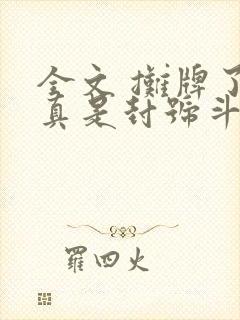 全文 攤牌了
真是封號斗
羅四火